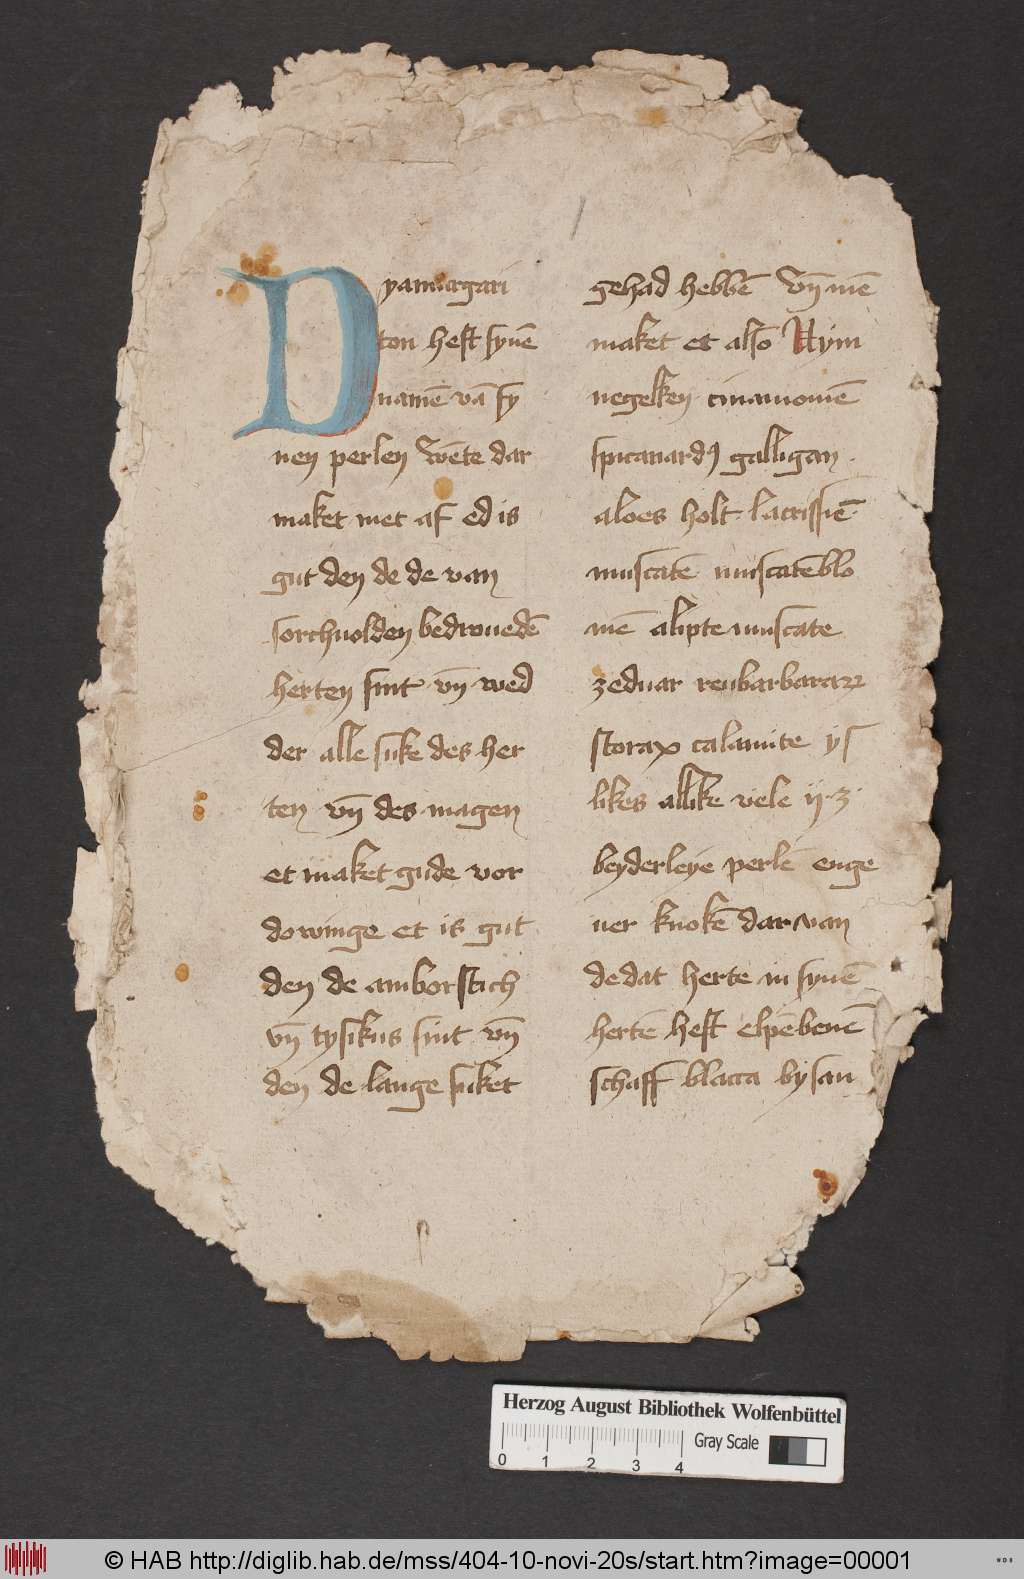 Dyamargari
ton heft synē
namē vā sy
nen perlen wēte dar
maket met af ed is
gut den de de van
sorchuolden bedrouedē
herten sint vn̄ wed
der alle suke des her
ten vn̄ des magen
et maket gude vor
dowinge et is gut
den de amborstich
vn̄ tysikus sint vn̄
den de lange suket
gehad hebbē Vn̄ mē
maket et also Nym
negelken cinamomē
spicanardꝰ galligan
aloes holt lacrissiē
muscatē muscatēblo
mē alipte muscate
zeduar reubarbarar
storax calamite ys
likes allike vele ij ʒ
beyderleye perlē enge
uer knokē dar van
de dat herte in synē
hertē heft elpēbenē
schaff blacca bysan
Herzog August Bibliothek Wolfenbüttel
Gray Scale
0 1 2 3 4
© HAB http://diglib.hab.de/mss/404-10-novi-20s/start.htm?image=00001